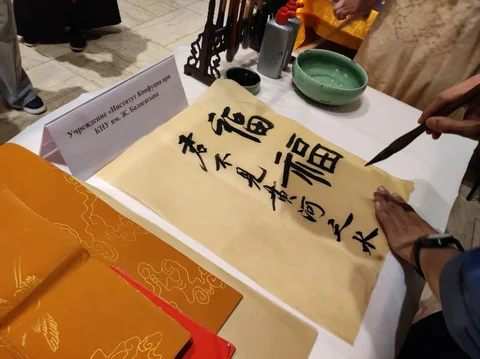 Учреждение «Институт Конфуция при
КНУ им. Ж. Баласагына
福
福
君不见黄河之水